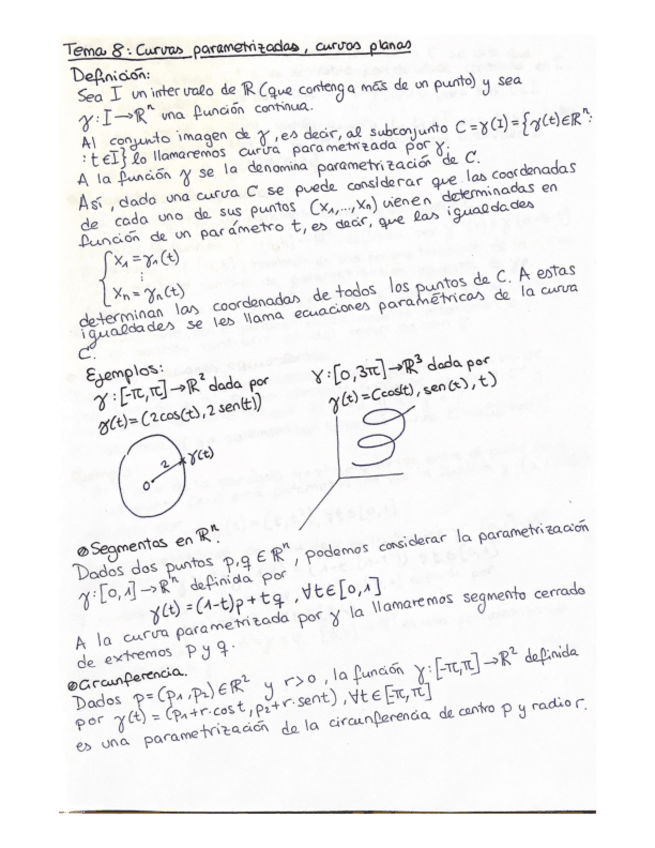 Tema 8: Curvas parametrizadas, curvas planas
Definición:
Sea I un intervalo de ℝ (que contenga más de un punto) y sea
γ: I→ℝⁿ una función continua.
Al conjunto imagen de γ, es decir, al subconjunto C=γ(I)={γ(t)∈ℝⁿ:
: t∈I} lo llamaremos curva parametrizada por γ.
A la función γ se la denomina parametrización de C.
Así, dada una curva C se puede considerar que las coordenadas
de cada uno de sus puntos (x₁,...,xₙ) vienen determinadas en
función de un parámetro t, es decir, que las igualdades
{ x₁ = γ₁(t)
⋮
xₙ = γₙ(t)
determinan las coordenadas de todos los puntos de C. A estas
igualdades se les llama ecuaciones paramétricas de la curva
C.
Ejemplos:
γ: [-π,π]→ℝ² dada por
γ(t)=(2cos(t), 2sen(t))
γ: [0,3π]→ℝ³ dada por
γ(t)=(cos(t), sen(t), t)
0 2 γ(t)
Segmentos en ℝⁿ.
Dados dos puntos p,q∈ℝⁿ, podemos considerar la parametrización
γ: [0,1]→ℝⁿ definida por
γ(t)=(1-t)p+tq, ∀t∈[0,1]
A la curva parametrizada por γ la llamaremos segmento cerrado
de extremos p y q.
Circunferencia.
Dados p=(p₁,p₂)∈ℝ² y r>0, la función γ: [-π,π]→ℝ² definida
por γ(t)=(p₁+r·cost, p₂+r·sent), ∀t∈[π,π]
es una parametrización de la circunferencia de centro p y radio r.